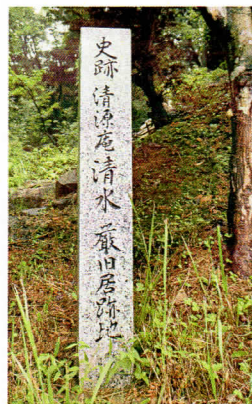 史跡 清源庵清水 巌旧居跡地